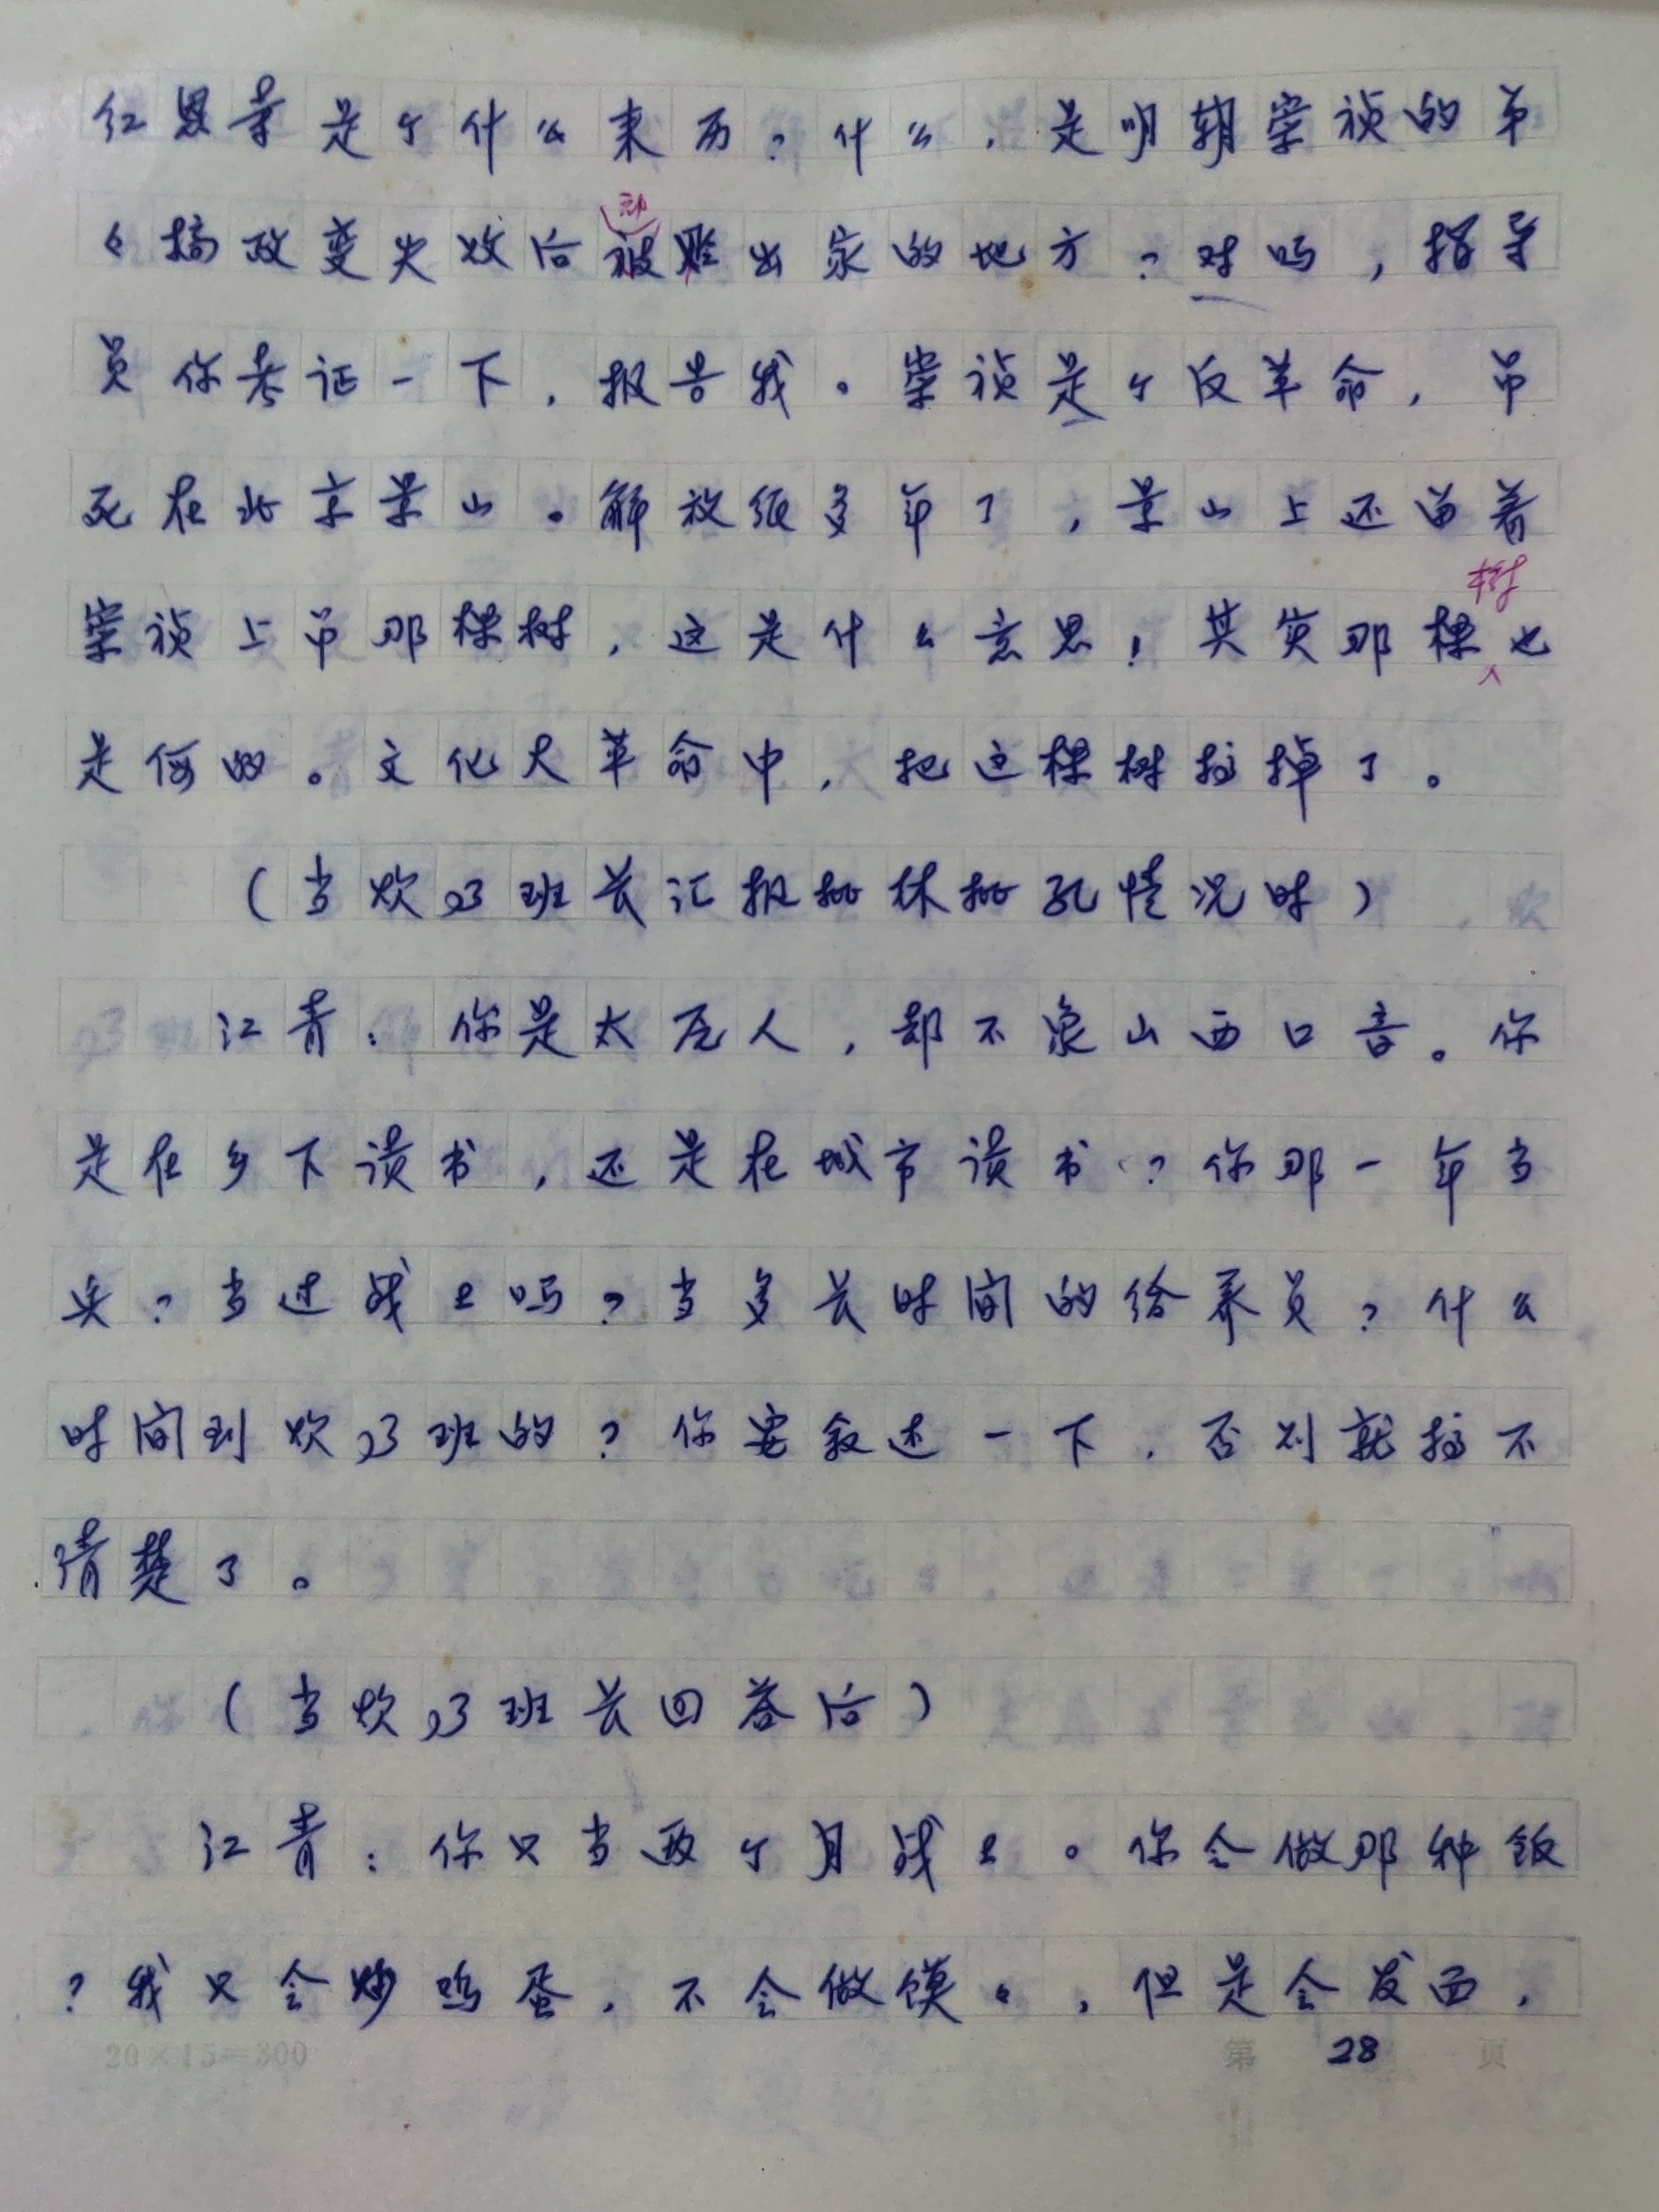 红恩寺是个什么来历?什么,是明朝崇祯的弟
々搞政变失败后被贬出家的地方?对吗,指导
员你考证一下,报告我。崇祯是个反革命,吊
死在北京景山。解放后多年了,景山上还留着
崇祯上吊那棵树,这是什么意思!其实那棵树也
是假的。文化大革命中,把这棵树拔掉了。
(当炊了班长汇报批林批孔情况时)
江青:你是太原人,却不象山西口音。你
是在乡下读书,还是在城市读书?你那一年当
兵?当过战士吗?当多长时间的给养员?什么
时间到炊了班的?你要叙述一下,否则就搞不
清楚了。
(当炊了班长回答后)
江青:你只当两个月战士。你会做那种饭
?我只会炒鸡蛋,不会做馍々,但是会发面,
20×15=300 第 28 页